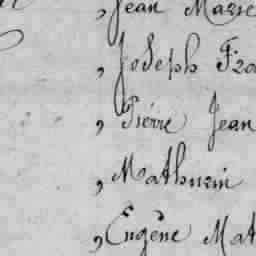 , Jean Marie
, Joseph
, Pierre Jean
, Mathurin
, Eugène Mat